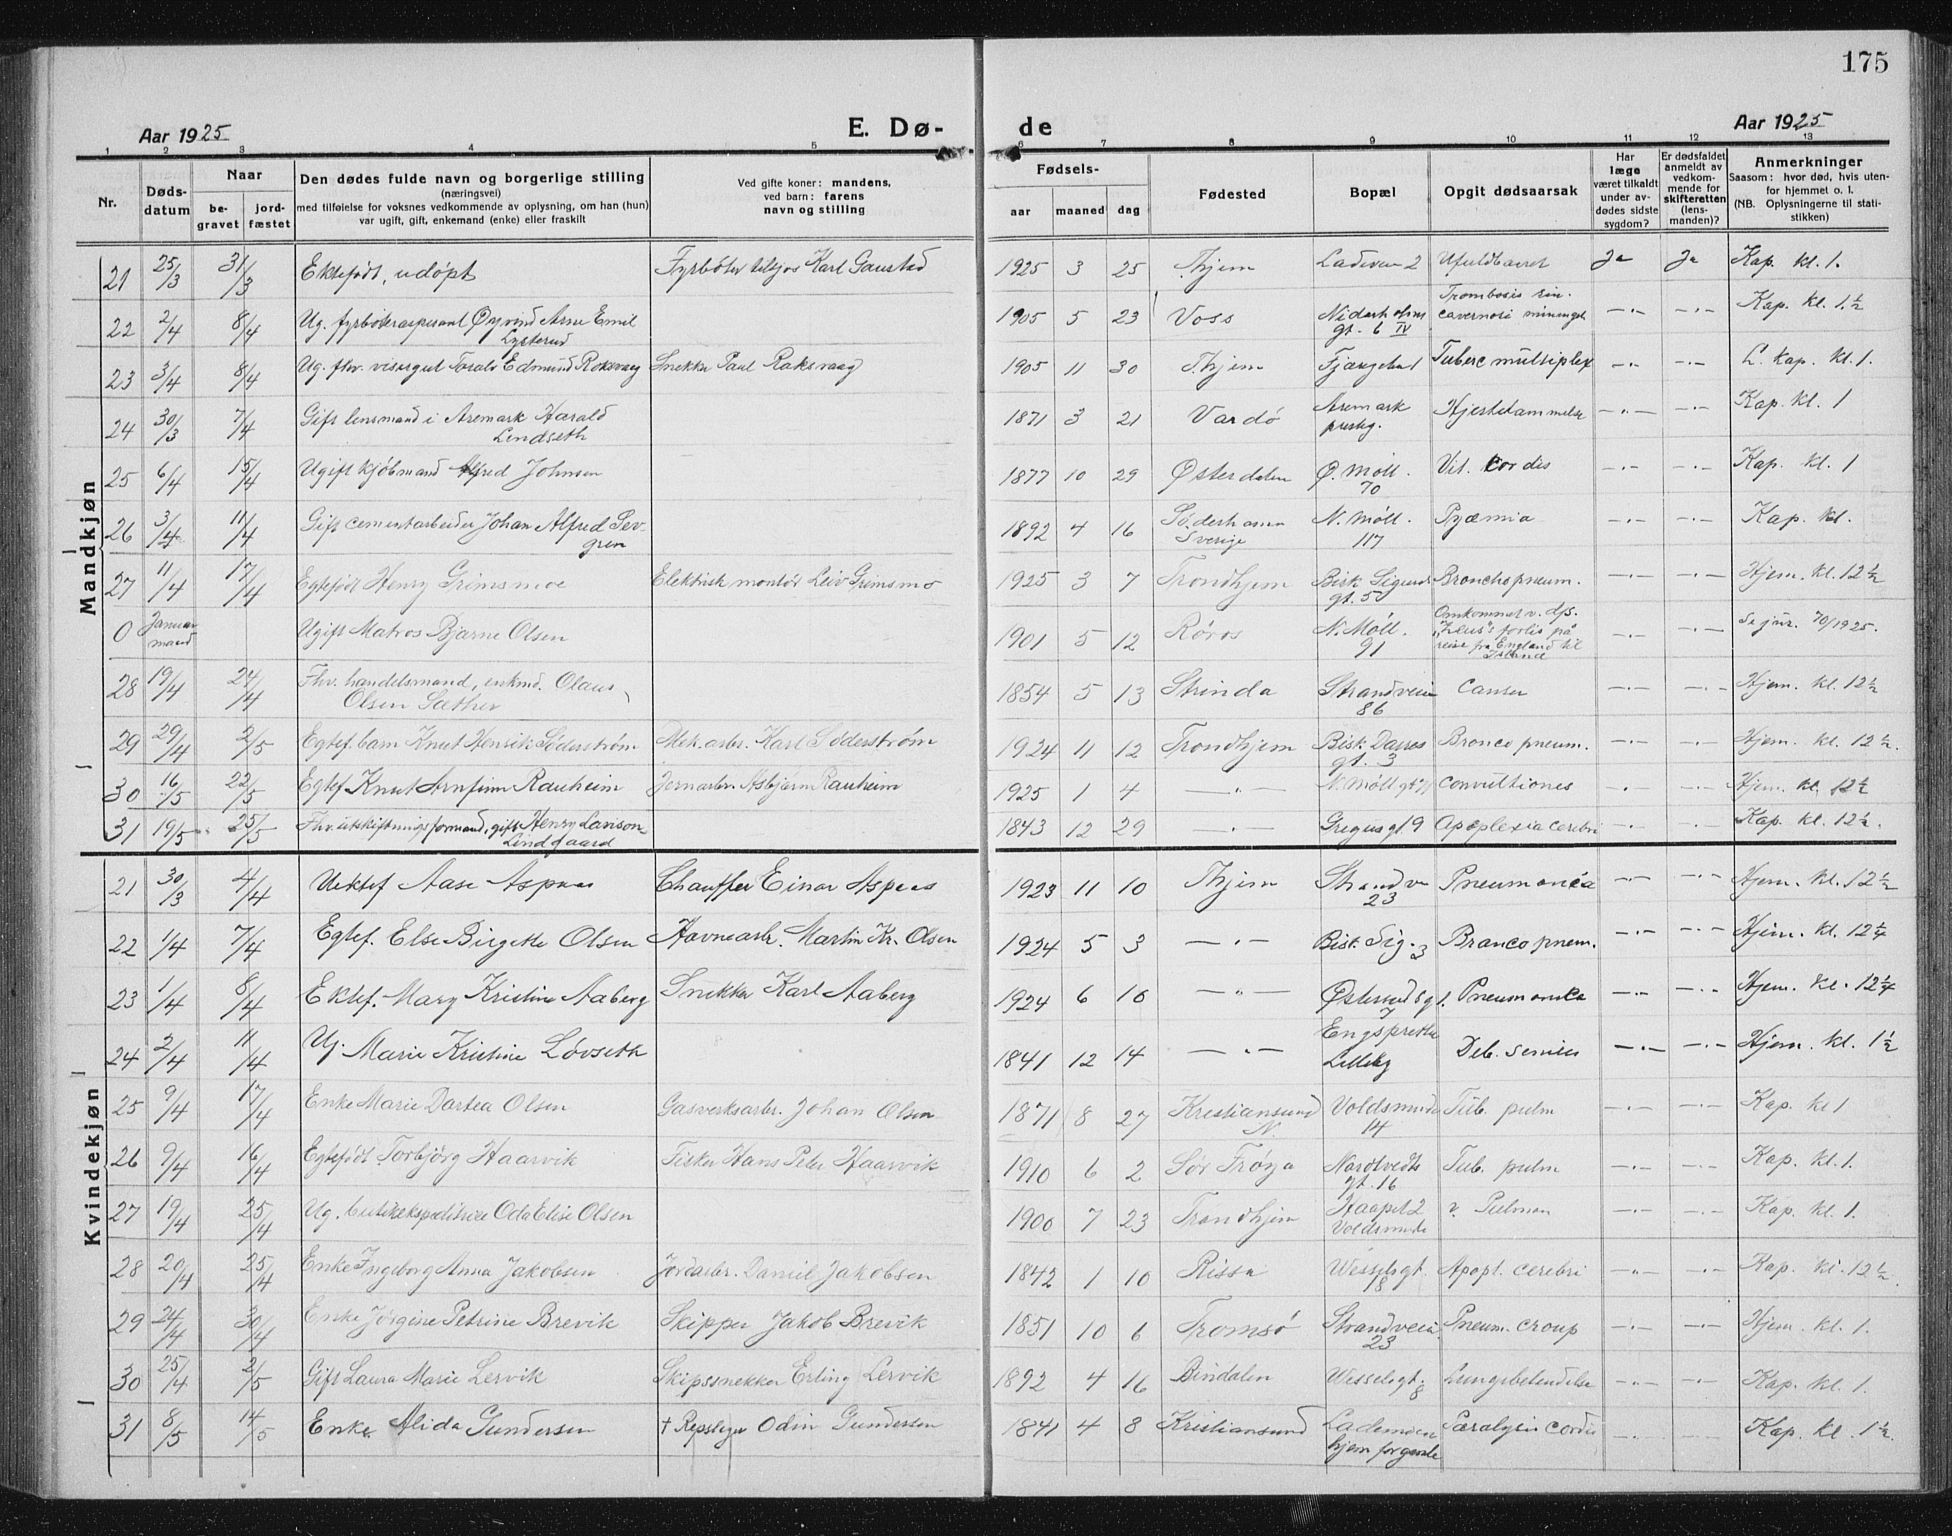 175
Aar 1925
E. Dø-
de
Aar 1925
1 2 3 4 5 6 7 8 9 10 11 12 13
Nr.
Døds-
datum
Naar
be-
gravet
jord-
fæstet
Den dødes fulde navn og borgerlige stilling
(næringsvei)
med tilføielse for voksnes vedkommende av oplysning, om han (hun)
var ugift, gift, enkemand (enke) eller fraskilt
Ved gifte koner: mandens,
ved barn: farens
navn og stilling
Fødsels-
aar maaned dag
Fødested
Bopæl
Opgit dødsaarsak
Har
læge
været tilkaldt
under av-
dødes sidste
sygdom?
Er dødsfaldet
anmeldt av
vedkom-
mende for
skifteretten
(lens-
manden)?
Anmerkninger
Saasom: hvor død, hvis uten-
for hjemmet o. l.
(NB. Oplysningerne til stati-
stikken)
Mandkjøn
21 25/3 31/3 Ektefødt, udøpt Fyrbøter Karl Gaustad 1925 3 25 Thjem Ladevei 2 Ufuldbaaret Ja Ja Kap. kl. 1.
22 2/4 8/4 Ug. fyrbøteraspirant Øyvind Arne Emil
Lysterud 1905 5 23 Voss Nidarholms
gt. 6 IV Trombosis sin.
cavernosi —"— —"— Kap. kl. 1½
23 3/4 8/4 Ug. fhv. visergut Toralv Edmund Roksvaag Snekker Paul Roksvaag 1905 11 30 Thjem Tuberc multiplex —"— —"— L. Kap. kl. 1.
24 30/3 7/4 Gift lensmand i Aremark Harald
Lindseth 1871 3 21 Vardø Aremark
prestg. Hjertelammelse —"— —"— Kap. kl. 1
25 6/4 15/4 Ugift kjøbmand Alfred Johnsen 1877 10 29 Østerdalen Ø. Møll.
70 Vit. Cordis —"— —"— Kap. kl. 1
26 3/4 11/4 Gift cementarbeider Johan Alfred Sev-
gren 1892 4 16 Söderhamn
Sverige N. Møll.
117 Pyæmia —"— —"— Kap. kl.
27 11/4 17/4 Egtefødt Henry Grimsmoe Elektrisk montør Leiv Grimsmo 1925 3 7 Trondhjem Bisk Sigurds
gt. 5 Bronchopneum. —"— —"— Hjem. kl. 12½
0 Januar
maaned Ugift Matros Bjarne Olsen 1901 5 12 Røros N. Møll.
91 Omkommet v. d/s.
"Zeus's forlis på
reise fra England til
Island —"— —"— Se jnr. 70/1925.
28 19/4 24/4 Fhv. handelsmand, enkmd. Olaus
Olsen Sæther 1854 5 13 Strinda Strandveien
86 Canser —"— —"— Hjem. kl. 12½
29 29/4 2/5 Egtef. barn Knut Henrik Söderstrøm Mek.arbr. Karl Söderstrøm 1924 11 12 Trondhjem Bisk. Darres
gt. 3 Broncopneum. —"— —"— Hjem. kl. 12½
30 16/5 22/5 Egtef Knut Arnfinn Rauheim Jernarbr. Asbjørn Rauheim 1925 1 4 —"— N. Møll gt 71 Convultiones —"— —"— Hjem. kl. 12½
31 19/5 25/5 Fhv. utskiftningsformand, gift Henry Lavison
Lindgaard 1843 12 29 —"— Gregus gt 9 Apoplexia cerebri —"— —"— Kap. kl. 12½.
Kvindekjøn
21 30/3 4/4 Uektef Aase Aspaas Chauffer Einar Aspaas 1923 11 10 Thjem Strandv
23 Pneumonia —"— —"— Hjem. kl. 12½
22 1/4 7/4 Egtef. Else Birgitte Olsen Havnearbr. Martin Kr. Olsen 1924 5 3 —"— Bisk. Sig. 3 Broncopneum. —"— —"— Hjem. kl. 12¼
23 1/4 8/4 Ektef. Mary Kristine Aaberg Snekker Karl Aaberg 1924 6 10 —"— Østersundsgt.
7 Pneumonia —"— —"— Hjem. kl. 12¼
24 2/4 11/4 Ug. Marie Kristine Løvseth 1841 12 14 —"— Lilleby Deb. senilis —"— —"— Hjem. kl. 1½
25 9/4 17/4 Enke Marie Dortea Olsen Gasverksarbr. Johan Olsen 1871 8 27 Kristiansund
N. Voldsminde
14 Tub. pulm —"— —"— Kap. kl 1
26 9/4 16/4 Egtefødt Torbjørg Haarvik Fisker Hans Peter Haarvik 1910 6 2 Sør Frøya Nordtvedts
gt. 16 Tub. pulm —"— —"— Kap. kl. 1.
27 19/4 25/4 Ug. butikekspeditrice Oda Elise Olsen 1900 7 23 Trondhjem Haapet 2
Voldsminde —"— —"— Kap. kl. 1.
28 20/4 25/4 Enke Ingeborg Anna Jakobsen Jordarbr. Daniel Jakobsen 1842 1 10 Rissa Wesselsgt.
18 Apopl. cerebri —"— —"— Kap. kl. 12½.
29 24/4 30/4 Enke Jørgine Petrine Brevik Skipper Jakob Brevik 1851 10 6 Tromsø Strandveien
23 Pneum. croup —"— —"— Hjem. kl. 1.
30 25/4 2/5 Gift Laura Marie Lervik Skipssnekker Erling Lervik 1892 4 16 Bindalen Wesselsgt.
8 Lungebetendelse —"— —"— Kap. kl. 1.
31 8/5 14/5 Enke Alida Gundersen † Repslager Odin Gundersen 1841 4 8 Kristiansund Lademoen
hjem for gamle Paralysis cordis —"— —"— Kap. kl. 1½.